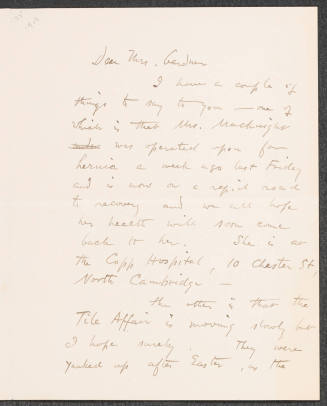 Dear Mrs. Gardner
I have a couple of
things to say to you — one of
which is that Mrs. MacKnight
was operated upon for
hernia a week ago last Friday
and is now on a rapid road
to recovery and we all hope
her health will soon come
back to her. She is at
the Capp Hospital, 10 Chester St,
North Cambridge —
The other is that the
Tile Affair is moving slowly but
I hope surely. They were
yanked up after Easter, as the